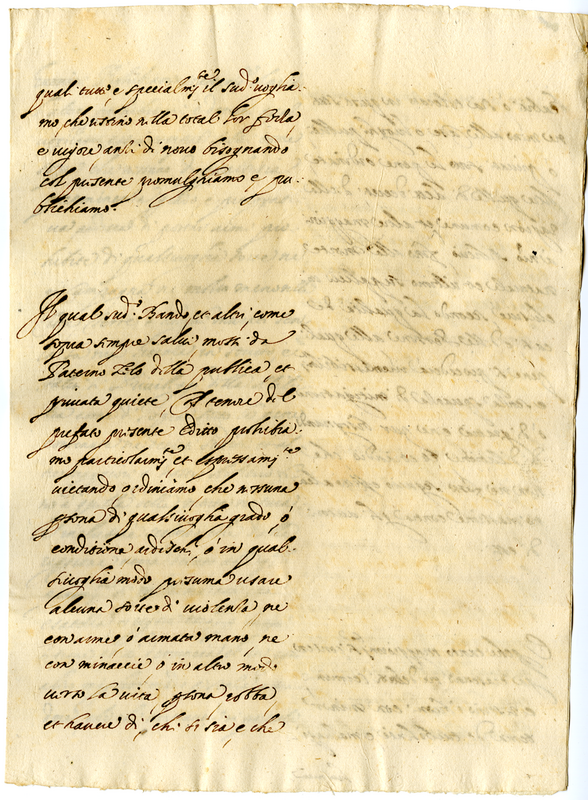 quali tutti e specialmte il sudo voglia:
mo, che restino nella total lor forza,
e vigore, anzi di novo bisognando
col presente promulghiamo e pu:
blichiamo.
Il qual sudo Bando, et altri come
sopra sempre salvi, mossi da
Paterno Zelo della publica, et
privata quiete, Al tenore del
prefato presente Editto prohibia:
mo particolarmte et espressamte
vietando ordiniamo che nessuna
psona di qualsivoglia grado, ó
condizione ardischi, ó in qual:
sivoglia modo presuma usare
alcuna sorte di violenza, ne
con arme ó armata mano, ne
con minaccie ó in altro modo
verso la vita, psona, robba,
et havere di, chi si sia, e che